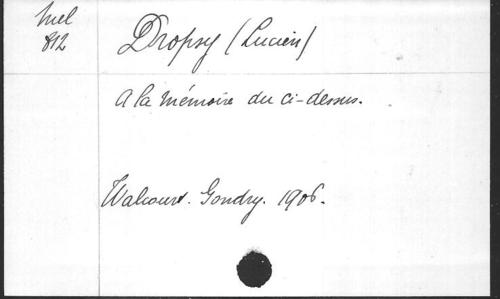 Mel
812
Dropsy (Lucien)
A la mémoire du ci-dessus.
Walcourt. Gondry. 1906.